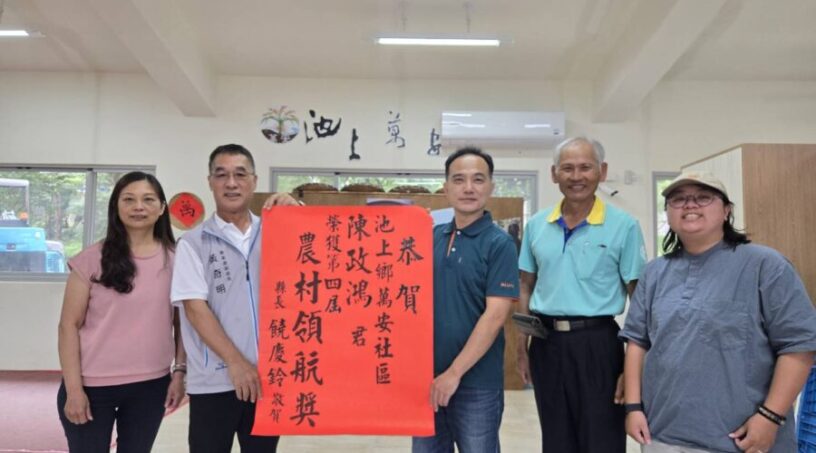 池上萬安
萬
恭賀
池上鄉萬安社區
陳政鴻君
榮獲第四屆
農村領航獎
縣長 饒慶鈴 敬賀